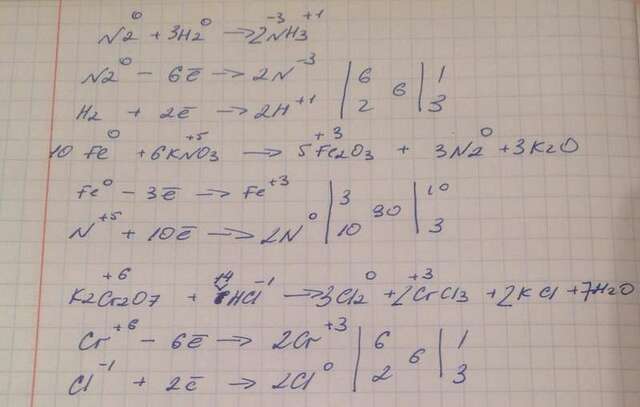 N2⁰ + 3H2⁰ → 2N⁻³H3⁺¹
N2⁰ - 6ē → 2N⁻³ | 6 6 | 1
H2 + 2ē → 2H⁺¹ | 2 | 3
10 Fe⁰ + 6KN⁺⁵O3 → 5Fe⁺³2O3 + 3N2⁰ + 3K2O
Fe⁰ - 3ē → Fe⁺³ | 3 30 | 10
N⁺⁵ + 10ē → 2N⁰ | 10 | 3
K2Cr⁺⁶2O7 + 14HCl⁻¹ → 3Cl2⁰ + 2Cr⁺³Cl3 + 2KCl + 7H2O
Cr⁺⁶ - 6ē → 2Cr⁺³ | 6 6 | 1
Cl⁻¹ + 2ē → 2Cl⁰ | 2 | 3